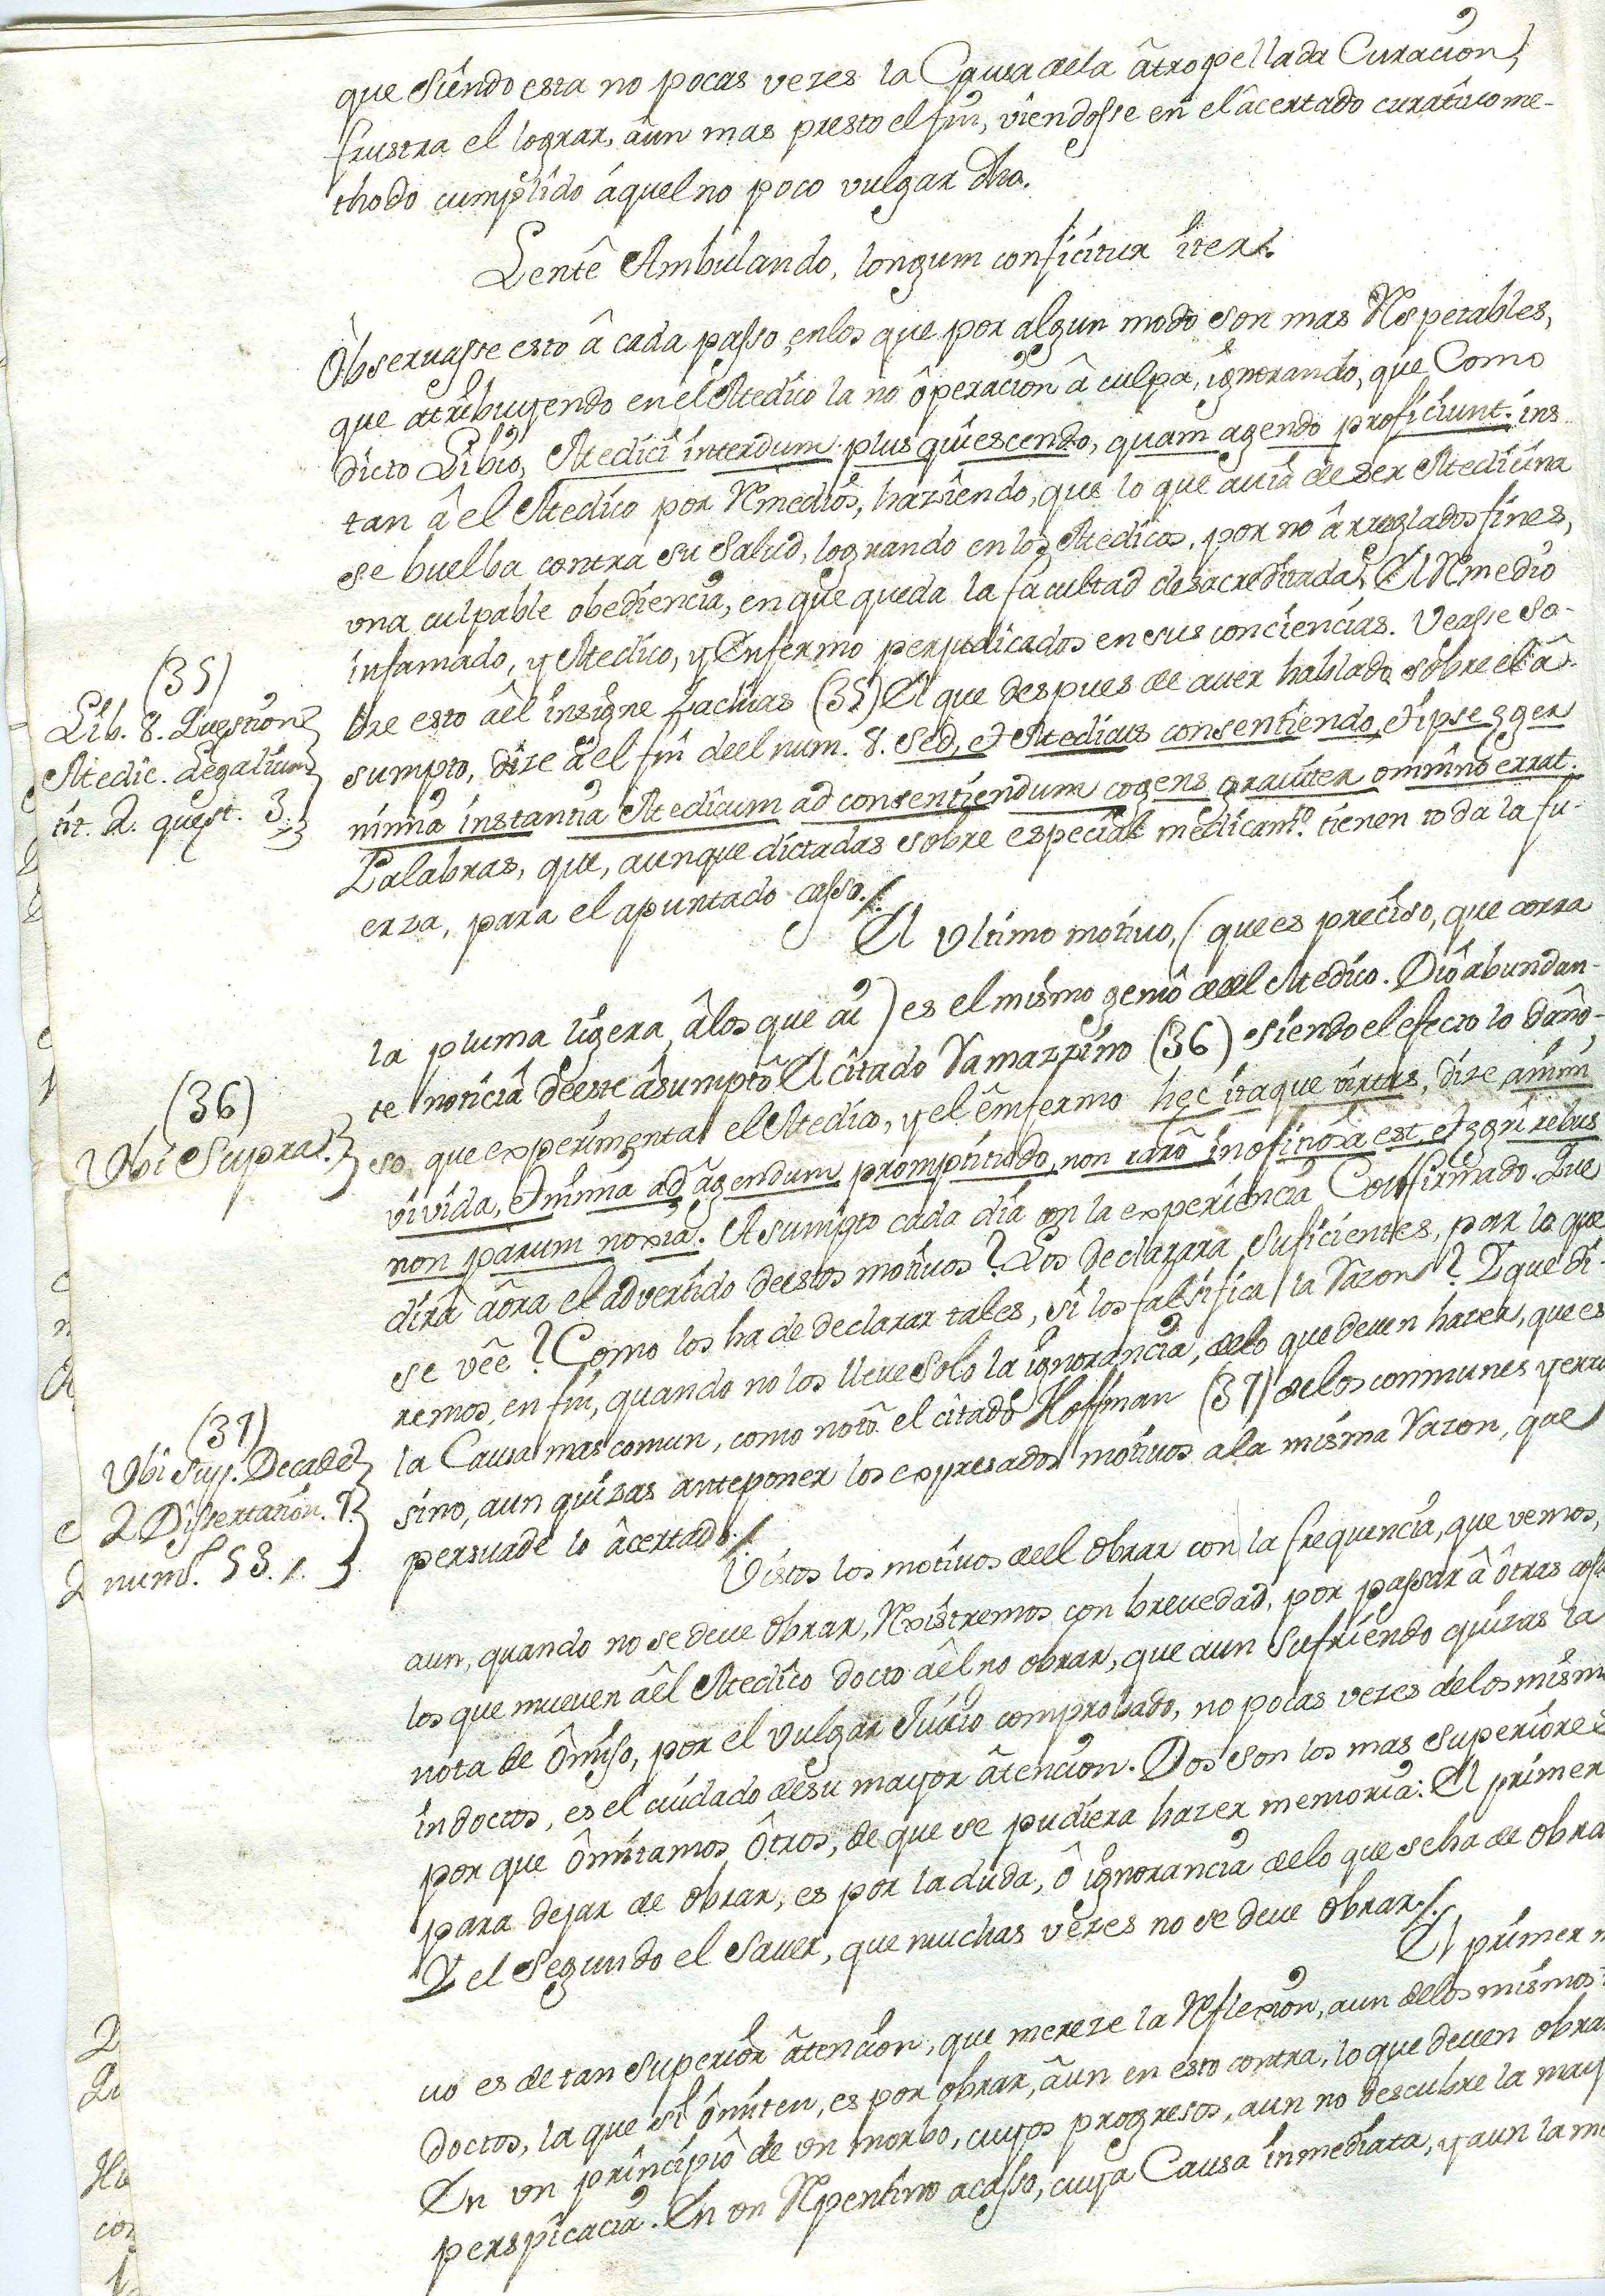 que siendo esta no pocas vezes la Causa dela âtropellada Curacion,
frustra el lograr, âun mas presto el fin, viendosse en el âcertado curatiuo me-
thodo cumplido âquel no poco vulgar dho.
Lentê Ambulando, longum conficitur iter.
Observasse esto â cada passo, enlos que por algun modo son mas Respetables,
que atribuyendo en el Medico la no ôperacion â culpa, ignorando, que Como
dicto Libio, Medici interdum plus quiescendo, quam agendo proficiunt. ins
tan â el Medico por Remedios, haziendo, que lo que auia de ser Medicina
se buelba contra su Salud, logrando en los Medicos, por no ârreglados fines,
vna culpable obediencia, en que queda la facultad desacreditada, El Remedio
infamado, y Medico, y Enfermo perjudicados en sus conciencias. Veasse So-
bre esto âel insigne Zachias (35) El que despues de auer hablado sobre el â-
sumpto, dize âel fin deel num. 8. Sed, et Medicus consentiendo, et ipse eger
nimia instantia Medicum ad consentiendum cogens grauiter omnino errat.
Palabras, que, aunque dictadas sobre especial medicamto. tienen toda la fu-
erza, para el apuntado casso./.
(35)
Lib. 8. Question
Medic. Legalium
tit. 2. quest. 3.
El vltimo motiuo, (que es preciso, que corra
la pluma ligera âlos que ai) es el mismo genio deel Medico. Diô abundan-
te noticia deeste âsumpto El citado Ramazzino (36) siendo el efecto lo daño-
so, que experimenta el Medico, y el ênfermo hec itaque virtus, dize animi
vivida, et nimia ad âgendum promptitudo, non rarô inofinoxia est, et egri rebus
non parum noxia. Asumpto cada dia con la experiencia Confirmado. Que
dirâ âora el advertido destos motiuos? Los declarara suficientes, por lo que
se vêe? Como los ha de declarar tales, si los falsifica la Razon? Y que di-
remos, en fin, quando no los lleue Solo la ignorancia, delo que deuen hazer, que es
la Causa mas comun, como notô el citado Hoffman (37) delos communes yerro
sino, aun quizas anteponer los expresados motiuos ala misma Razon, que
persuade lo âcertado./.
(36)
Vbi Supra.
(37)
Vbi Sup. Decade
2 Dissertation. 7.
num. 53.
Vistos los motiuos deel obrar con la frequencia, que vemos,
aun, quando no se deue obrar, Rexistremos con breuedad, por passar â ôtras cosa
los que mueuen âel Medico docto âel no obrar, que aun sufriendo quizas la
nota de Ômiso, por el vulgar Juicio comprobado, no pocas vezes delos mismo
indoctos, es el cuidado desu mayor âtencion. Dos son los mas superiores
por que Ômitamos Ôtros, de que se pudiera hazer memoria: El primer
para dejar de obrar, es por la duda, ô ignorancia delo que se ha de obra
Y el Segundo el Sauer, que muchas vezes no se deue obrar./.
El primer m
uo es de tan superior âtencion, que mereze la Reflexion, aun delos mismos
doctos, la que si ômiten, es por obrar, âun en esto contra, lo que deuen obra
En vn principiô de vn morbo, cuyos progresos, aun no descubre la may
perspicacia. En vn Repentino acasso, cuya Causa inmediata, y aun la me